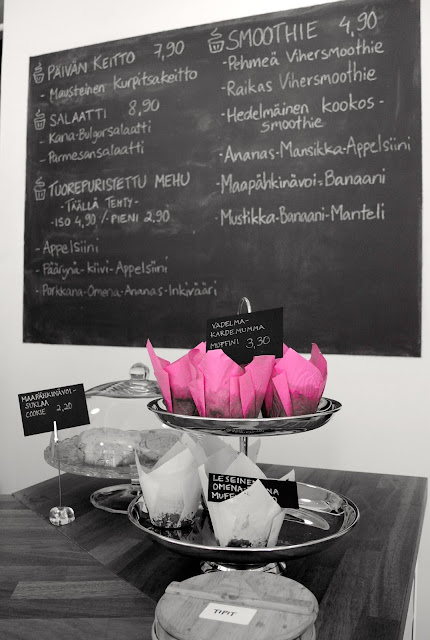 PÄIVÄN KEITTO 7,90
- Mausteinen Kurpitsakeitto
SALAATTI 8,90
- Kana-Bulgorsalaatti
- Parmesansalaatti
TUOREPURISTETTU MEHU
- TÄÄLLÄ TEHTY -
- ISO 4,90 /- PIENI 2,90
- Appelsiini
- Päärynä-Kiivi-Appelsiini
- Porkkana-Omena-Ananas-Inkivääri
SMOOTHIE 4,90
- Pehmeä Vihersmoothie
- Raikas Vihersmoothie
- Hedelmäinen kookos-
smoothie
- Ananas-Mansikka-Appelsiini
- Maapähkinävoi-Banaani
- Mustikka-Banaani-Manteli
VADELMA-
KARDEMUMMA
MUFFINI 3,30
MAAPÄHKINÄVOI-
SUKLAA
COOKIE 2,20
LESEINE
OMENA-
MUFF
TIPIT